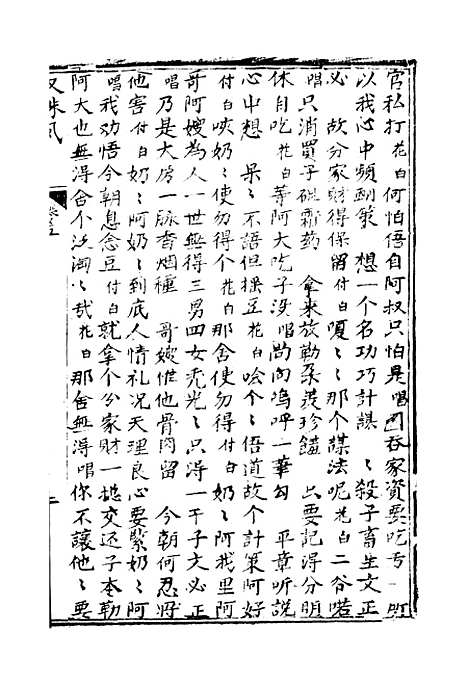 官私打花白何怕唔自阿叔只怕是唱圖吞家資要吃亏一所
以我心中頻劃策　想一个名功巧計謀　ミ殺子畜生文正
必　故分家財得保留付白嗄ミミ那个謀法呢花白二爷喏
唱只消買子砒霜药　拿来放勒朶羨珍饈　只要記得分明
休自吃花白等阿大吃子没唱尚向嗚呼一筆勾　平章听説
心中想　呆ミ不語但揉豆花白哙个ミ唔道故个計策阿好
付白唉奶ミ使勿得个花白那舍使勿得付白奶ミ阿我里阿
哥阿嫂為人一世無得三男四女禿光ミミ只得一干子文必正
唱乃是大房一脉香烟種　哥嫂惟他骨肉留　今朝何忍将
他害付白奶ミ阿奶ミ到底人情礼况天理良心要緊奶ミ阿
唱我劝悟今朝息念豆付白就拿个分家財一塊交还子本勒
阿大也無得舍个泛淘ミ哉花白那舍無得唱你不讓他ミ要
双珠凤
卷五